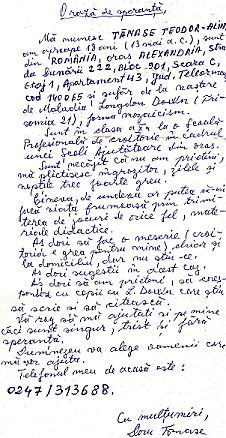 O rază de speranță,
Mă numesc TĂNASE TEODOR-ALIN,
am aproape 18 ani (13 mai a.c.), sunt
din ROMÂNIA, oraș ALEXANDRIA, Str.
da Dunării 222, Bloc. 901, Scara C,
Etaj 1, Apartament 43, Jud. Teleorman
cod 140065 și sufăr de la naștere
de Maladia Longdon Down (Tri-
somia 21), formă mozaicism.
Sunt în clasa a la o școală
Profesională de croitorie în cadrul
unei Școli Ajutătoare din oraș.
Sunt necăjit că nu am prieteni,
mă plictisesc îngrozitor, zilele și
nopțile trec foarte greu.
Cineva, de undeva ar putea să-mi
facă viața frumoasă prin trimi-
terea de jocuri de orice fel, mate-
riale didactice.
Aș dori să fac o meserie (croi-
toria e grea pentru mine), chiar și
la domiciliu, dar nu știu ce.
Aș dori sugestii în acest caz.
Aș dori să am prieteni, să cores-
pondez cu copii cu L. Down care știu
să scrie și să citească.
Vă rog să mă ajutați și pe mine
căci sunt singur, trist și fără
speranță.
Dumnezeu va alege oamenii care
mă vor ajuta.
Telefonul meu de acasă este:
0247/313688.
Cu mulțumiri,
Tănase